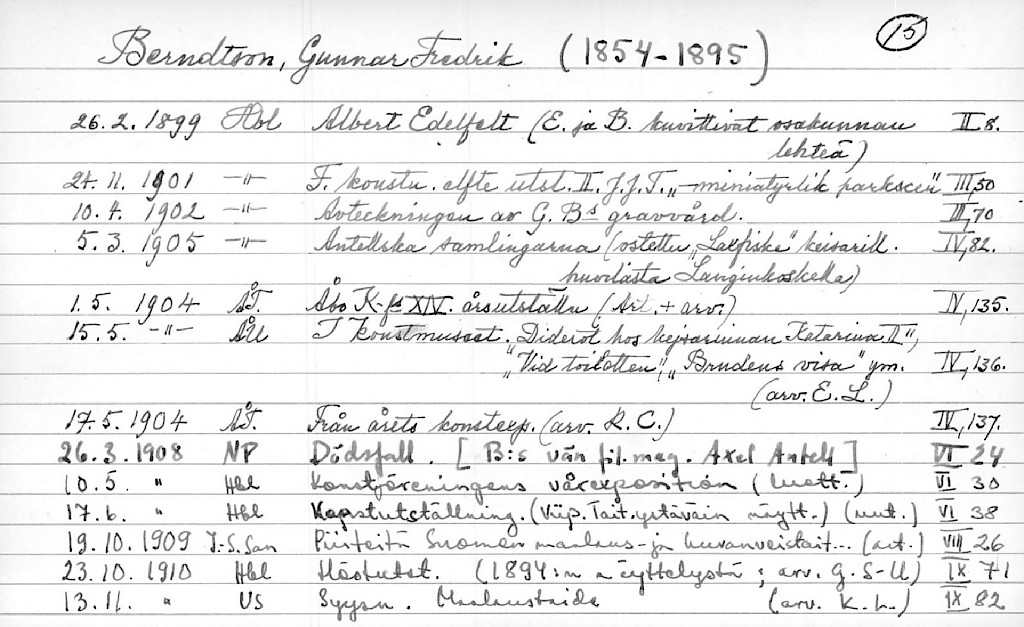 Berndtson, Gunnar Fredrik (1854-1895) 15
26.2.1899 Hbl Albert Edelfelt (E. ja B. kuvittivat osakunnan II 8.
lehteä)
24.11.1901 -"- F. konstn. elfte utst. II. J.J.T. „miniatyrlik parkscen" III,50
10.4.1902 -"- Avteckningen av G. B:s gravvård. III,70
5.3.1905 -"- Antellska samlingarna (ostettu „Laxfiske" keisarill. IV,82.
huvilasta Langinkoskella)
1.5. 1904 ÅT. Åbo K-fs XIV. årsutställn (Art. + arv.) IV,135.
15.5. -"- ÅU I konstmuseet. „Diderot hos kejsarinnan Katarina II",
„Vid toiletten", „Brudens visa" ym. IV,136.
(arv. E.L.)
17.5.1904 ÅT. Från årets konstexp. (arv. R.C.) IV,137.
26.3.1908 NP Dödsfall. [B:s vän fil.mag. Axel Antell] VI 24
10.5. " Hbl Konstföreningens vårexposition (luett.) VI 30
17.6. " Hbl Konstutställning. (Viip. Tait.ystäväin näytt.) VI 38
19.10.1909 J.-S.San Piirteitä Suomen maalaus- ja kuvanveistait... (art.) VIII 26
23.10.1910 Hbl Höstutst. (1894:n näyttelystä; arv. G.S-U) IX 71
13.11. " US Syysn. Maalaustaide (arv. K.L.) IX 82